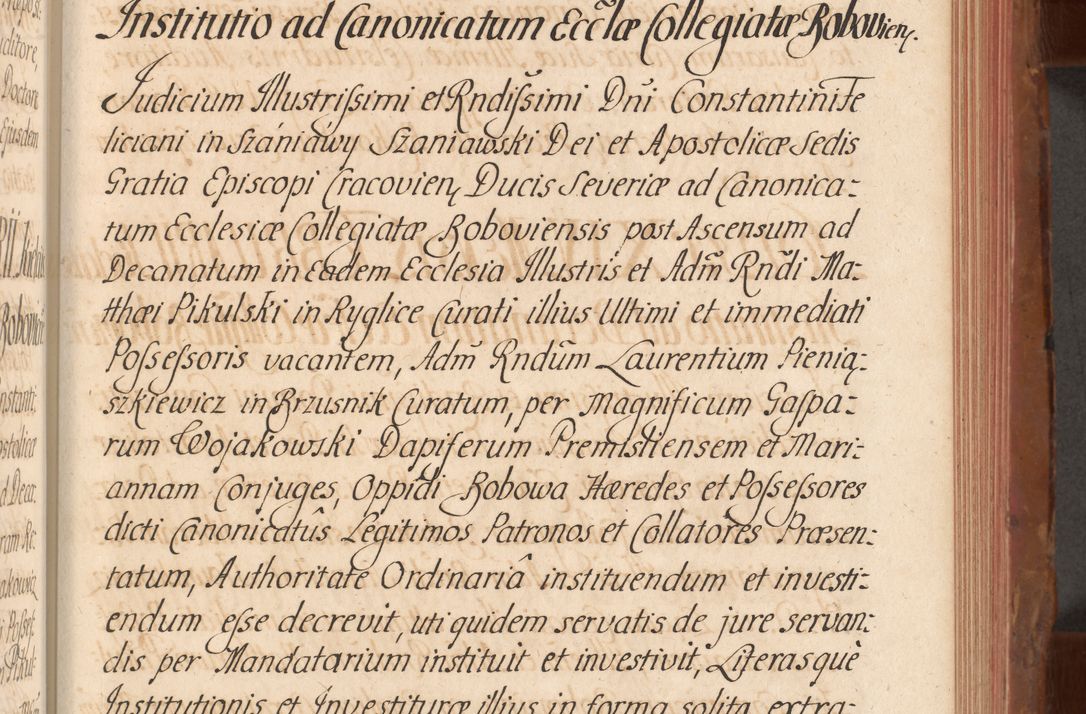 Institutio ad Canonicatum Eccl̃æ Collegiatæ Bobovien.
Judicium Illustrissimi et Rndissimi Dñi Constantini Fe
liciani in Szániawy Szaniawski Dei et Apostolicæ Sedis
Gratia Episcopi Cracovien, Ducis Severiæ ad Canonica=
tum Ecclesiæ Collegiatæ Boboviensis post Ascensum ad
Decanatum in Eadem Ecclesia Illustris et Adm̃ Rndi Ma=
tthæi Pikulski in Ryglice Curati illius Ultimi et immediati
Possessoris vacantem, Adm̃ Rndũm Laurentium Pienią=
szkiewicz in Brzusnik Curatum, per Magnificum Gaspa=
rum Wojakowski Dapiferum Premisliensem et Mari=
annam Conjuges, Oppidi Bobowa Hæredes et Possessores
dicti Canonicatûs Legitimos Patronos et Collatores Præsen=
tatum, Authoritate Ordinariâ instituendum et investi=
endum esse decrevit, uti quidem servatis de jure servan=
dis per Mandatarium instituit et investivit, Literasquè
Institutionis et Investituræ illius in forma solita extra=